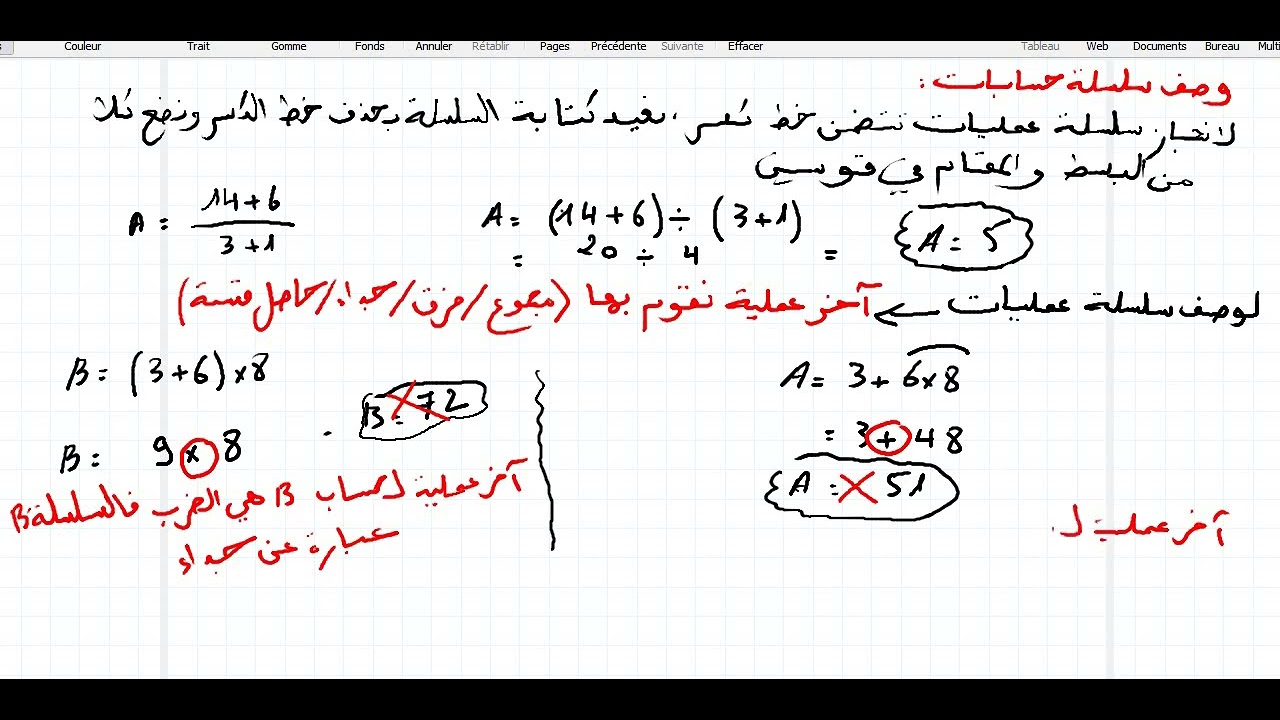 Couleur Trait Gomme Fonds Annuler Rétablir Pages Précédente Suivante Effacer Tableau Web Documents Bureau Multi
وصف سلسلة حسابات :
لانجاز سلسلة عمليات تتضمن خط كسر ، نعيد كتابة السلسلة بحذف خط الكسر ونضع كلا
من البسط والمقام في قوسين
A = \frac{14+6}{3+1} A = (14+6) ÷ (3+1)
= 20 ÷ 4 = A = 5
لوصف سلسلة عمليات ← آخر عملية نقوم بها (مجموع/فرق/جداء/حاصل قسمة)
A = 3 + 6×8
= 3 + 48
A = 51
آخر عملية ل
B = (3+6)×8
B = 9 × 8
B = 72
آخر عملية لحساب B هي الضرب فالسلسلة B
عبارة عن جداء